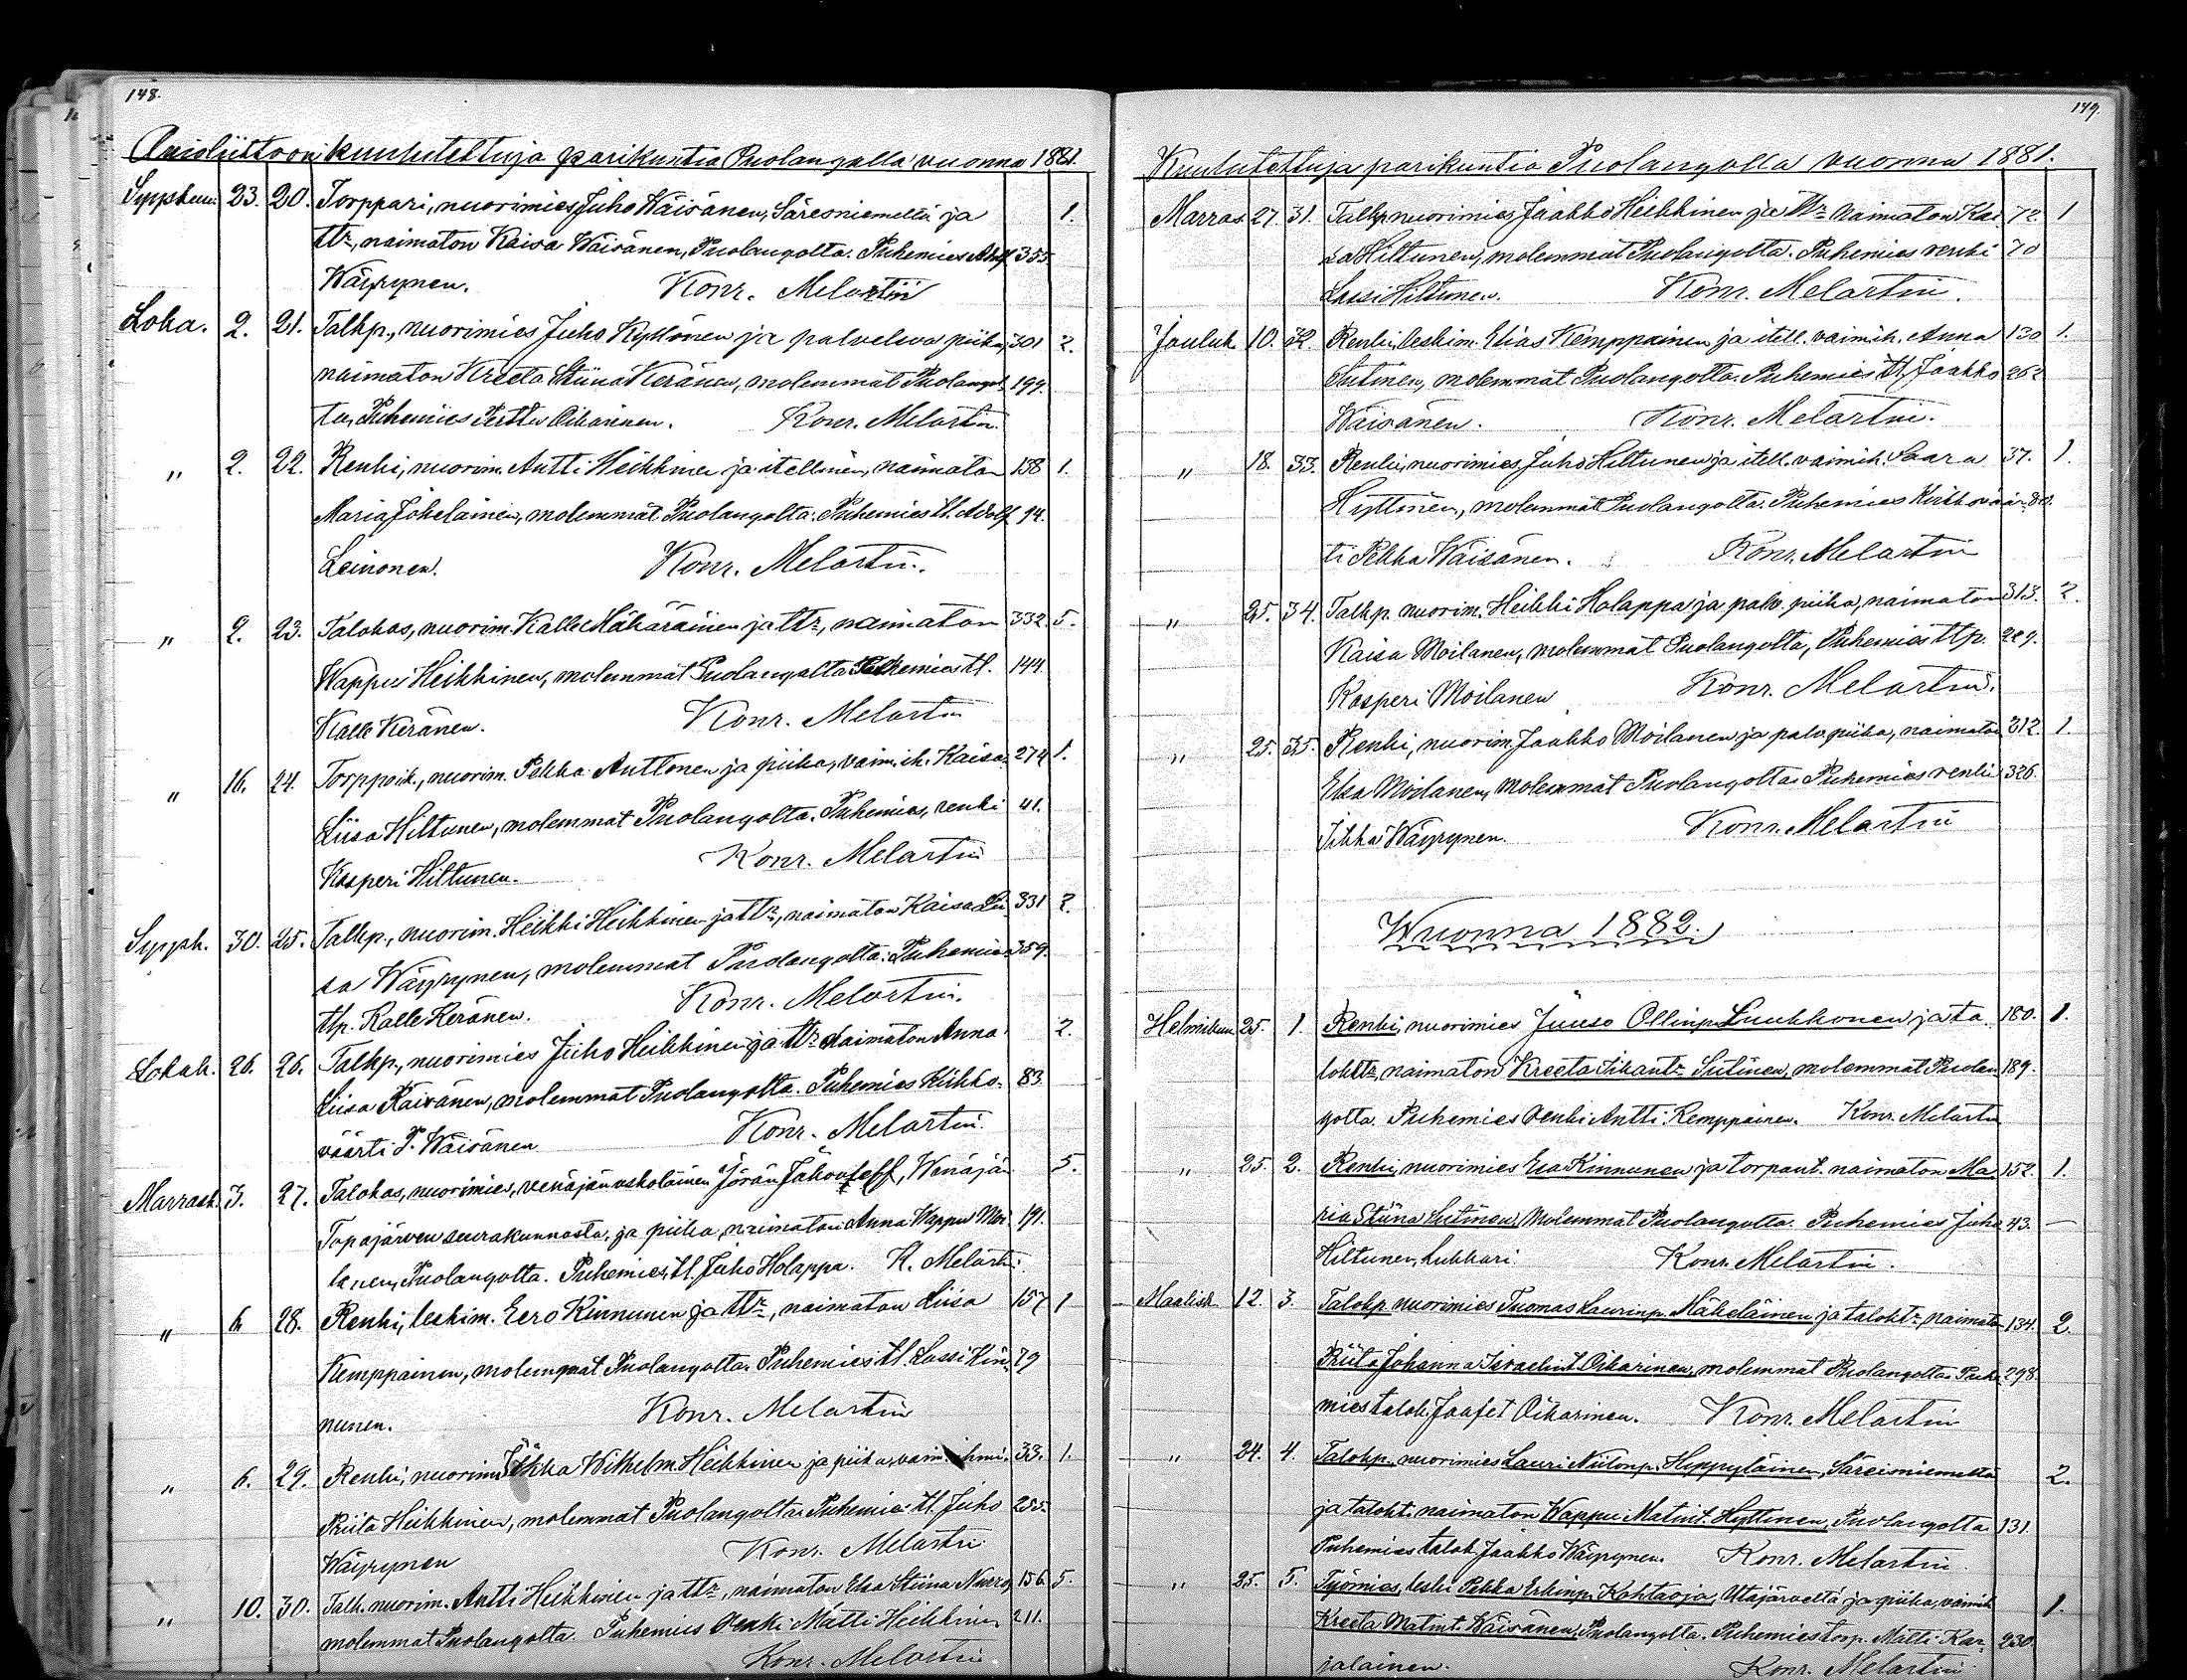 148.
Avioliittoon kuulutettuja parikuntia Puolangalla vuonna 1881.
Syyskuu. 23. 20. Torppari, nuorimies Juho Wäisänen, Säresniemeltä ja 1.
ttr, naimaton Kaisa Wäisänen, Puolangolta. Puhemies 355
Wäyrynen. Konr. Melartin
Loka. 2. 21. Talkp., nuorimies Juho Kyllönen ja palveleva piika, 301 2.
naimaton Kreeta Stiina Keränen, molemmat Puolangol 199.
ta, Puhemies Perttu Oikarinen. Konr. Melartin.
" 2. 22. Renki, nuorim. Antti Heikkinen ja itellinen, naimaton 158 1.
Maria Jokelainen, molemmat Puolangolta. Puhemies tl. Adolf 14.
Leinonen. Konr. Melartin.
" 2. 23. Talokas, nuorim. Kalle Mäkäräinen ja ttr, naimaton 332. 5.
Wappu Heikkinen, molemmat Puolangolta Puhemies tl. 144.
Kalle Keränen. Konr. Melartin
" 16. 24. Torppoik., nuorim. Pekka Anttonen ja piika, vaim.ih. Kaisa 274 1.
Liisa Hiltunen, molemmat Puolangolta. Puhemies, renki 41.
Kasperi Hiltunen. Konr. Melartin
Syysk. 30. 25. Talkp., nuorim. Heikki Heikkinen ja ttr, naimaton Kaisa Lii 331 2.
sa Wäyrynen, molemmat Puolangolta. Puhemies 359.
tlp. Kalle Keränen. Konr. Melartin.
Lokak. 26. 26. Talkp., nuorimies Juho Heikkinen ja ttr naimaton Anna 2.
Liisa Räisänen, molemmat Puolangolta. Puhemies Kirkko- 83
väärti P. Wäisänen Konr. Melartin.
Marrask. 3. 27. Talokas, nuorimies, venäjänuskolainen Jörän Jakovleff, Wenäjän 5.
Topajärven seurakunnasta, ja piika, naimaton Anna Wappu Moi 191.
lanen, Puolangolta. Puhemies, tl. Juho Holappa. K. Melartin.
" 6. 28. Renki, leskim. Eero Kinnunen ja ttr, naimaton Liisa 157 1
Kemppainen, molemmat Puolangolta. Puhemies tl. Lassi Kin- 79
nunen. Konr. Melartin
" 6. 29. Renki, nuorimies Wilhelm. Heikkinen ja piika, vaim. ihmi. 33. 1.
Priita Heikkinen, molemmat Puolangolta Puhemies tl. Juho 255
Wäyrynen Konr. Melartin
" 10. 30. Talk. nuorim. Antti Heikkinen ja ttr, naimaton Elsa Stiina 156 5.
molemmat Puolangolta. Puhemies Renki Matti Heikkinen 211.
Konr. Melartin
149.
Kuulutettuja parikuntia Puolangolla vuonna 1881.
Marras 27. 31. Talkp. nuorimies Jaakko Heikkinen ja ttr naimaton Kai 72. 1
sa Hiltunen, molemmat Puolangolta. Puhemies renki 70
Lassi Hiltunen. Konr. Melartin.
Jouluk 10. 32. Renki, leskim. Elias Kemppainen ja itell. vaimih. Anna 130 1.
Sutinen, molemmat Puolangolta. Puhemies tl. Jaakko 262
Wäisänen. Konr. Melartin.
" 18. 33. Renki, nuorimies Juho Hiltunen ja itell. vaimih. Saara 37. 1.
Hyttinen, molemmat Puolangolta. Puhemies Kirkovär- 80.
ti Pekka Wäisänen. Konr. Melartin
" 25. 34. Talkp. nuorim. Heikki Holappa ja palv. piika, naimaton 313. 2.
Kaisa Moilanen, molemmat Puolangolta, Puhemies tlp. 289.
Kasperi Moilanen Konr. Melartin.
" 25. 35. Renki, nuorim. Jaakko Moilanen ja palv. piika, naimaton 312. 1.
Elsa Moilanen, molemmat Puolangolta Puhemies renki 326.
Iikka Wäyrynen. Konr. Melartin
Wuonna 1882.
Helmikuu 25. 1. Renki, nuorimies Juuso Ollinp. Luukkonen ja ta- 180. 1.
lokttr, naimaton Kreeta Iikantr Sutinen, molemmat Puolan 189.
golta. Puhemies Renki Antti Kemppainen. Konr. Melartin
" 25. 2. Renki, nuorimies Esa Kinnunen ja torpant. naimaton Ma 152. 1.
ria Stiina Sutinen, Molemmat Puolangolta. Puhemies Juho 43. —
Hiltunen, Lukkari. Konr. Melartin.
Maalisk 12. 3. Talokp. nuorimies Tuomas Laurinp. Mäkeläinen ja taloktr, naimaton 134. 2.
Priita Johanna Israelint. Oikarinen, molemmat Puolangolta. Puhe 298.
mies talok. Jaafet Oikarinen. Konr. Melartin
" 24. 4. Talokp., nuorimies Lauri Niilonp. Heppyläinen, Säreisniemeltä 2.
ja talokt. naimaton Wappu Matint. Hyttinen, Puolangolta 131.
Puhemies talok. Jaakko Wäyrynen. Konr. Melartin.
" 25. 5. Työmies, leski Pekka Erkinp. Kohtaoja, Utajärveltä ja piika, vaimih 1.
Kreeta Matint. Wäisänen, Puolangolta. Puhemies torp. Matti Kar- 230.
jalainen. Konr. Melartin